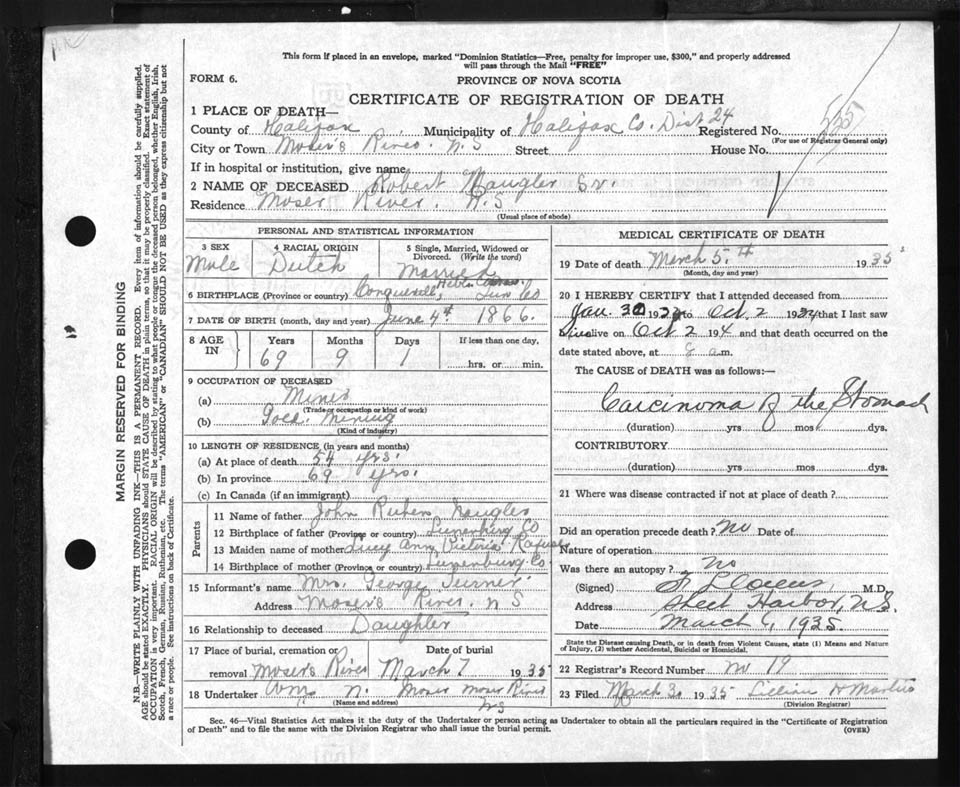 This form if placed in an envelope, marked "Dominion Statistics—Free, penalty for improper use, $300," and properly addressed
will pass through the Mail "FREE"
FORM 6.
PROVINCE OF NOVA SCOTIA
CERTIFICATE OF REGISTRATION OF DEATH
1 PLACE OF DEATH—
County of Halifax Municipality of Halifax Co. Dist 24 Registered No. 535
(For use of Registrar General only)
City or Town Moser's River. N.S Street House No.
If in hospital or institution, give name
2 NAME OF DECEASED Robert Naugler Sr.
Residence Moser River, N.S
(Usual place of abode)
PERSONAL AND STATISTICAL INFORMATION
3 SEX 4 RACIAL ORIGIN 5 Single, Married, Widowed or Divorced. (Write the word)
Male Dutch Married
6 BIRTHPLACE (Province or country) Lun Co
7 DATE OF BIRTH (month, day and year) June 4th 1866.
8 AGE IN Years Months Days If less than one day,
69 9 1 hrs. or min.
9 OCCUPATION OF DECEASED
(a) Miner
(Trade or occupation or kind of work)
(b) Gold Mining
(Kind of industry)
10 LENGTH OF RESIDENCE (in years and months)
(a) At place of death 54 yrs.
(b) In province 69 yrs.
(c) In Canada (if an immigrant)
Parents
11 Name of father John Ruben Naugler
12 Birthplace of father (Province or country) Lunenburg Co
13 Maiden name of mother Lucy Ann Victoria Rafuse
14 Birthplace of mother (Province or country) Lunenburg Co.
15 Informant's name Mrs. George Turner
Address Moser's River, N S
16 Relationship to deceased Daughter
17 Place of burial, cremation or removal Moser's River Date of burial March 7 1935
18 Undertaker Wm. N. Moser Moser River
(Name and address) NS
MEDICAL CERTIFICATE OF DEATH
19 Date of death March 5th 1935
(Month, day and year)
20 I HEREBY CERTIFY that I attended deceased from
Jan. 192 to Oct. 2 19 that I last saw
alive on Oct 2 194 and that death occurred on the
date stated above, at 8 a.m.
The CAUSE of DEATH was as follows:—
Carcinoma of the Stomach
(duration) yrs mos dys.
CONTRIBUTORY
(duration) yrs mos dys.
21 Where was disease contracted if not at place of death?
Did an operation precede death? No Date of
Nature of operation
Was there an autopsy? No
(Signed) M.D.
Address Sheet Harbor, N.S.
Date March 6, 1935.
State the Disease causing Death, or in death from Violent Causes, state (1) Means and Nature
of Injury, (2) whether Accidental, Suicidal or Homicidal.
22 Registrar's Record Number No 19
23 Filed March 1935 Lillian H
(Division Registrar)
Sec. 46—Vital Statistics Act makes it the duty of the Undertaker or person acting as Undertaker to obtain all the particulars required in the "Certificate of Registration
of Death" and to file the same with the Division Registrar who shall issue the burial permit.
(OVER)
MARGIN RESERVED FOR BINDING
N.B.—WRITE PLAINLY WITH UNFADING INK—THIS IS A PERMANENT RECORD. Every item of information should be carefully supplied.
AGE should be stated EXACTLY. PHYSICIANS should STATE CAUSE OF DEATH in plain terms, so that it may be properly classified. Exact statement of
OCCUPATION is very important. RACIAL ORIGIN will be described by stating to what people or tongue the deceased person belonged, whether English, Irish,
Scotch, French, German, Russian, Ruthenian, etc. The terms "AMERICAN" or "CANADIAN" SHOULD NOT BE USED as they express citizenship but not
a race or people. See instructions on back of Certificate.